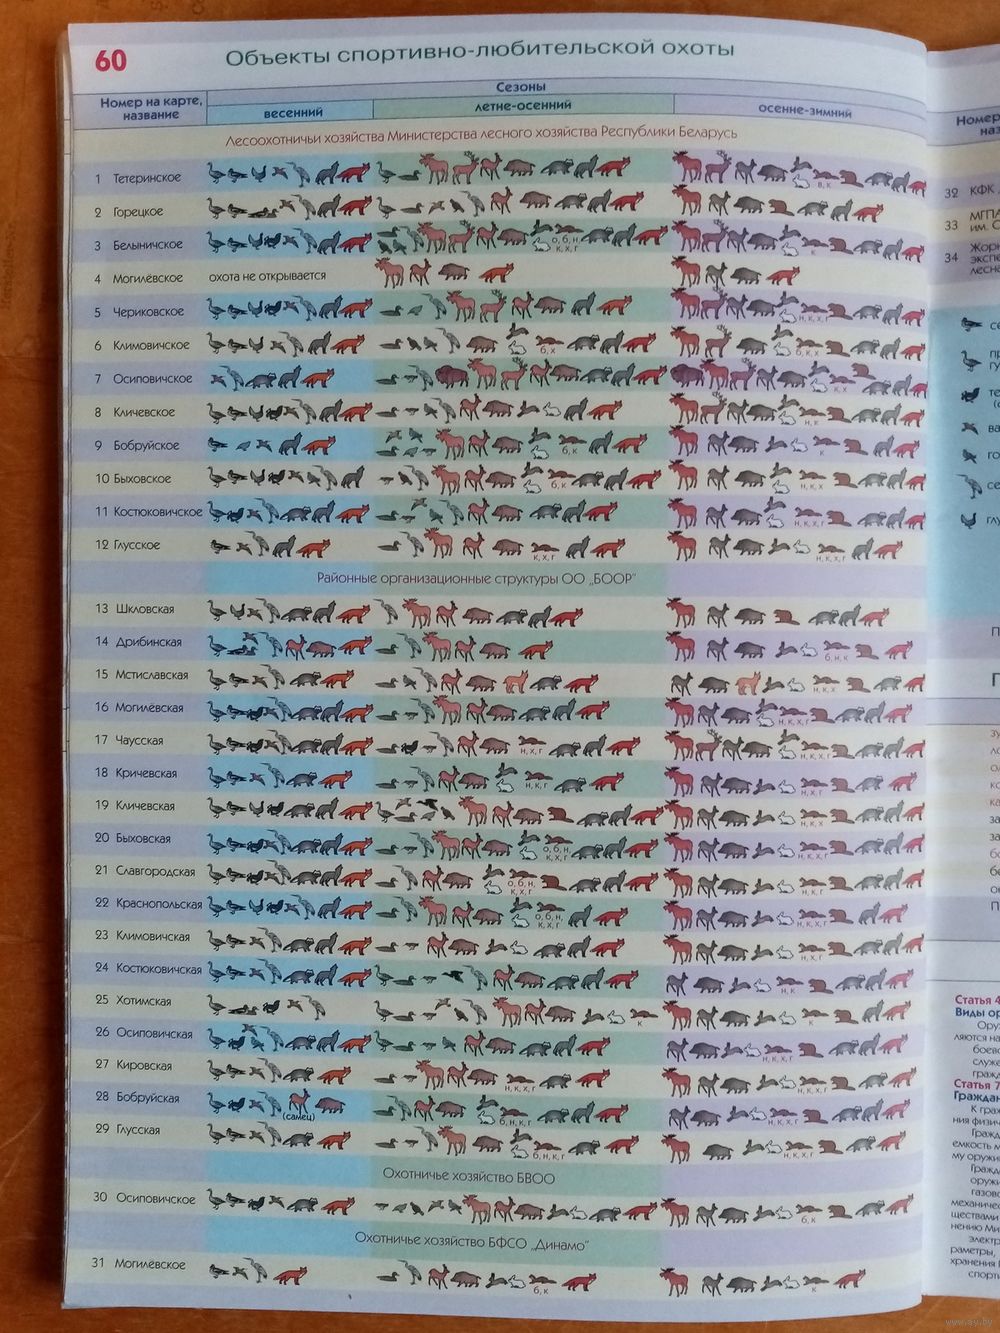 60
Объекты спортивно-любительской охоты
Номер на карте,
название
Сезоны
весенний
летне-осенний
осенне-зимний
Лесоохотничьи хозяйства Министерства лесного хозяйства Республики Беларусь
1 Тетеринское
в, к
2 Горецкое
3 Белыничское
о, б, н,
к, х, г
к
4 Могилёвское охота не открывается
5 Чериковское
н, к, х, г
6 Климовичское
б, х
б, к, х
7 Осиповичское
к, х
8 Кличевское
н, к
9 Бобруйское
б, к
к
10 Быховское
б, к
н, к, х
11 Костюковичское
н, к, х, г
12 Глусское
к, х, г
н, к, х, г
Районные организационные структуры ОО „БООР"
13 Шкловская
14 Дрибинская
б, н, к
15 Мстиславская
н, к, х
16 Могилёвская
н, к, х, г
17 Чаусская
н, х, г
н, к, х, г
18 Кричевская
н, к, г
н, х, г
19 Кличевская
н, к, х
20 Быховская
о, б, н,
к, х, г
н, к, х, г
21 Славгородская
о, б, н,
к, х, г
н, к, г
22 Краснопольская
о, б, н,
к, х, г
н, к, х, г
23 Климовичская
н, х, г
24 Костюковичская
н, к
25 Хотимская
к
к
26 Осиповичская
н, к, х, г
27 Кировская
н, к, х, г
28 Бобруйская
(самец)
б, н, к, г
н, к, х, г
29 Глусская
б, н, к, г
н, к, х, г
Охотничье хозяйство БВОО
30 Осиповичское
б, к
Охотничье хозяйство БФСО „Динамо"
31 Могилёвское
б, к
к
Номер
наз
32 КФК
33 МГПЛ
им. С
34 Жорн
экспе
лесна
се
пр
гу
те
ва
го
се
гл
П
Статья 4
Виды ор
Ору
ляются на
боево
служе
гражд
Статья 7
Граждан
К граж
ния физич
Гражд
емкость м
му оружи
Гражда
оружи
газово
механичес
ществами
нению Ми
электр
раметры,
хранения
спорти
www.ay.by